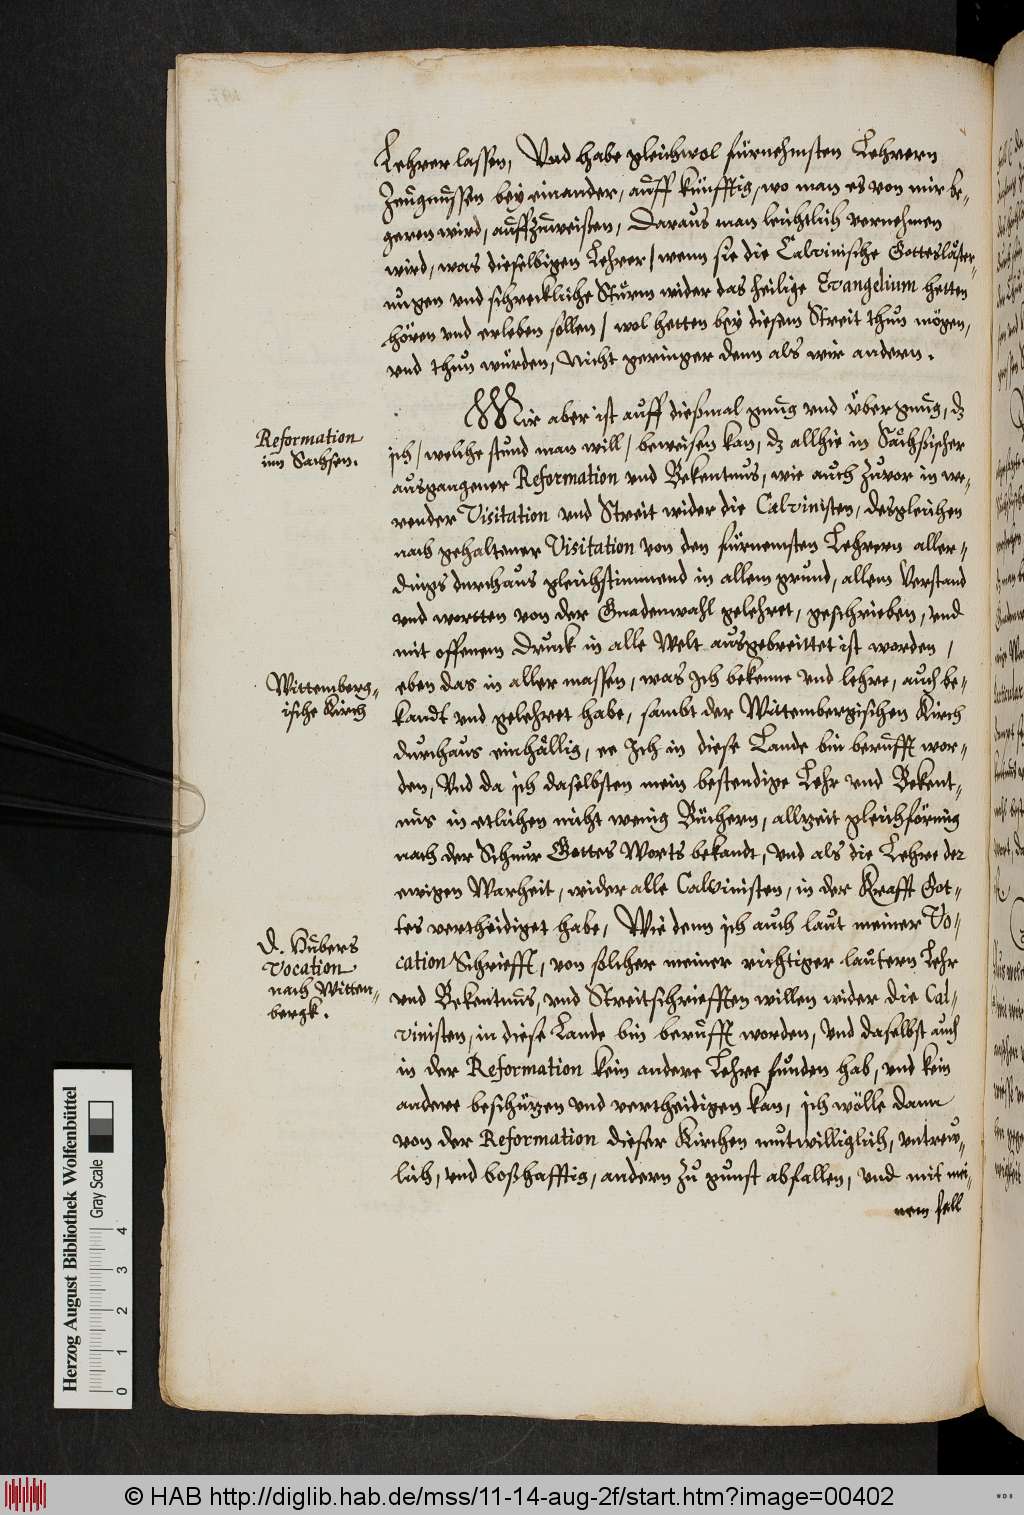 Lehrer lassen, Vnd habe gleichwol fürnehmsten Lehrern
Zeugnussen bey einander, auff künfftig, wo man es von mir be-
geren wird, auffzuweisen, Daraus man leichtlich vernehmen
wird, was dieselbigen Lehrer / wenn sie die Calvinische Gotteslester-
ungen vnd schreckliche Sturm wider das heilige Evangelium hetten
hören vnd erleben sollen / wol hetten bey diesem Streit thun mögen,
vnd thun würden, Nicht geringer denn als wir andern.
Mir aber ist auff diesmal gnug vnd vber gnug, dz
Reformation
im Sachsen.
ich / welche stund man will / beweisen kan, dz allhie in Sächsischer
ausgangener Reformation vnd Bekentnus, wie auch zuvor in we-
render Visitation vnd Streit wider die Calvinisten, desgleichen
nach gehaltener Visitation von den fürnemsten Lehrern aller-
dings durchaus gleichstimmend in allem grund, allem Verstand
vnd wortten von der Gnadenwahl gelehret, geschrieben, vnd
mit offenem Druck in alle Welt ausgebreittet ist worden,
Wittemberg-
ische Kirch
eben das in aller massen, was Ich bekenne vnd lehre, auch be-
kandt vnd gelehret habe, sambt der Wittembergischen Kirch
durchaus einhällig, ee Ich in diese Lande bin berufft wor-
den, Vnd da ich daselbsten mein bestendige Lehr vnd Bekent-
nus in etlichen nicht wenig Büchern, allzeit gleichförmig
nach der Schnur Gottes Worts bekandt, Vnd als die Lehre der
ewigen Warheit, wider alle Calvinisten, in der Krafft Got-
tes vertheidiget habe, Wie denn ich auch laut meiner Vo-
D. Hubers
Vocation
nach Witten-
bergk.
cation Schriefft, von solcher meiner richtiger lautern Lehr
vnd Bekentnus, vnd Streitschriefften willen wider die Cal-
vinisten, in diese Lande bin berufft worden, Vnd daselbst auch
in der Reformation kein andere Lehre funden hab, vnd kein
andere beschützen vnd vertheidigen kan, ich wölle dann
von der Reformation dieser Kirchen mutwilliglich, vntrew-
lich, vnd boßhafftig, andern zu gunst abfallen, vnd mit mei-
nem fall
Herzog August Bibliothek Wolfenbüttel
Gray Scale
0 1 2 3 4
© HAB http://diglib.hab.de/mss/11-14-aug-2f/start.htm?image=00402